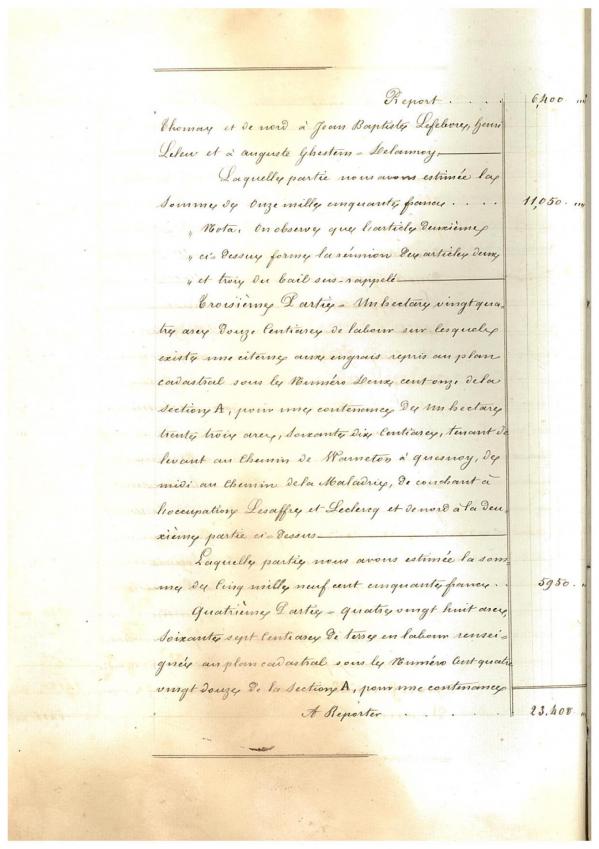 Report . . . . 6,400 "
Thomas et de nord à Jean Baptiste Lefebvre, Henri
Leleu et à Auguste Ghestem-Delannoy,
Laquelle partie nous avons estimée la
somme de Onze mille cinquante francs . . . . 11,050. "
" Nota. On observe que l'article deuxième
" ci-dessus forme la réunion des articles deux
" et trois du bail sus-rappelé
Troisième Partie - Un hectare vingt qua-
tre ares douze centiares de labour sur lesquels
existe une citerne aux engrais repris au plan
cadastral sous le Numéro Deux cent onze de la
section A, pour une contenance de Un hectare
trente trois ares, soixante dix centiares, tenant de
levant au Chemin de Warneton à Quesnoy, de
midi au Chemin de la Maladrie, de couchant à
l'occupation Lesaffre et Leclercq et de nord à la deu-
xième partie ci-dessus
Laquelle partie nous avons estimée la som-
me de Cinq mille neuf cent cinquante francs . . 5950. "
Quatrième Partie - Quatre vingt huit ares,
soixante sept centiares de terre en labour rensei-
gnée au plan cadastral sous le Numéro Cent quatre
vingt douze de la section A, pour une contenance
A Reporter . . . . . 23,400 "